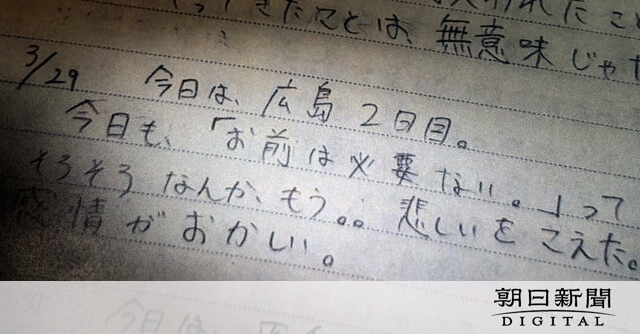 きたことは、無意味じゃ
3/29 今日は、広島2日目。
今日も、「お前は必要ない。」って
そろそろなんか、もう。。悲しいをこえた。
感情がおかしい。
今日は、
朝日新聞
DIGITAL